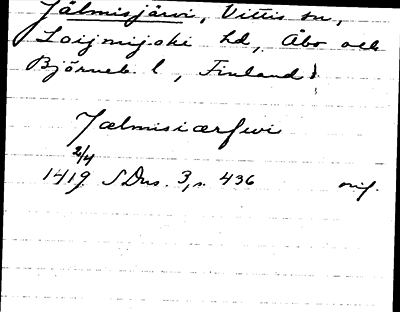 Jälmisjärvi, Vittis sn,
Loijmijoki hd, Åbo och
Björneb. l, Finland!
Jælmisiærfwi
2/4
1419 SDns. 3, s. 436 orig.